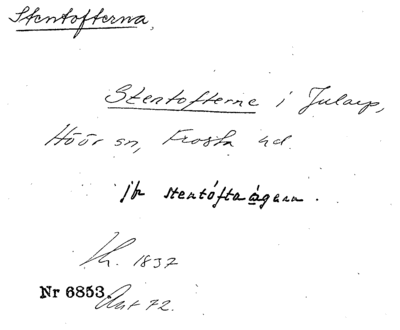 Stentofterna,
Stentofterne i Jularp,
Höör sn, Frosta hd.
jfr stentóftaågarn.
Lh. 1837
Nr 6853.
Ant 72.